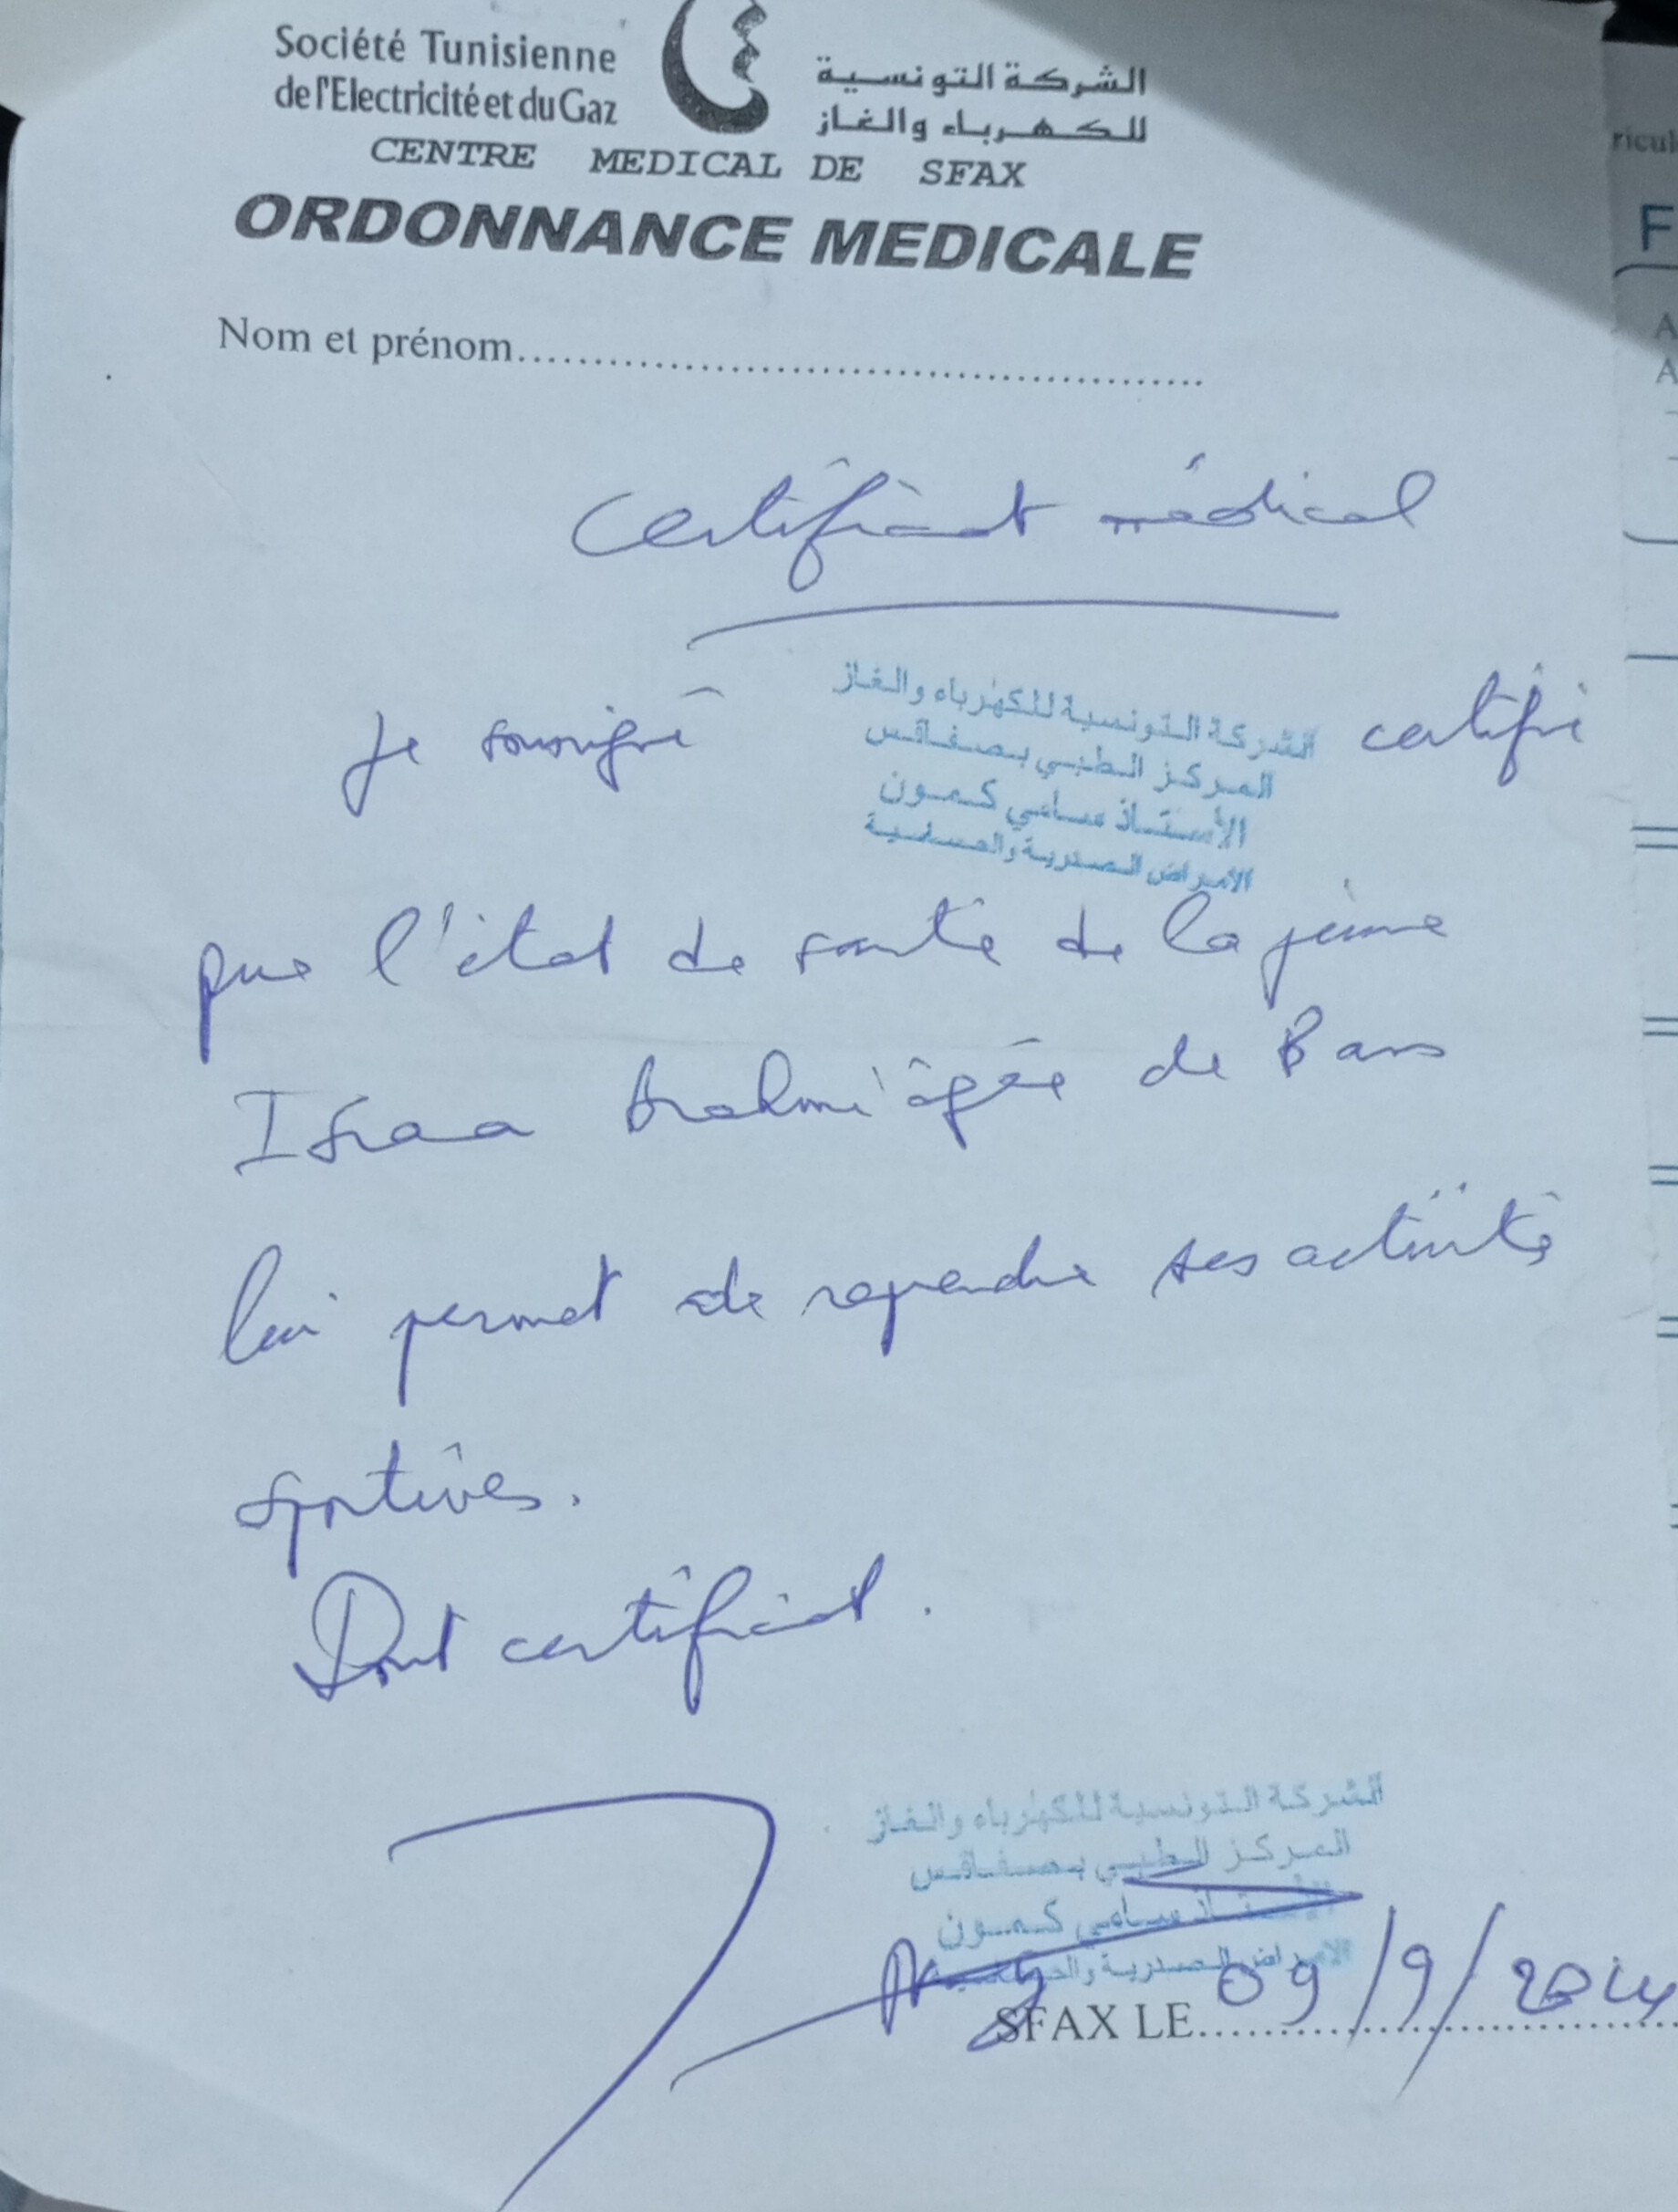 Société Tunisienne
de l'Electricité et du Gaz
الشركة التونسية
للكهرباء والغاز
CENTRE MEDICAL DE SFAX
ORDONNANCE MEDICALE
Nom et prénom
Certificat médical
Je soussigné
الشركة التونسية للكهرباء والغاز
المركز الطبي بصفاقس
الأستاذ سامي كمون
الامراض الصدرية والحساسية
certifie
que l'état de santé de la jeune
Israa Brahmi âgée de 8 ans
lui permet de reprendre ses activités
sportives.
Dont certificat.
الشركة التونسية للكهرباء والغاز
المركز الطبي بصفاقس
الأستاذ سامي كمون
الامراض الصدرية والحساسية
SFAX LE 09/9/2024